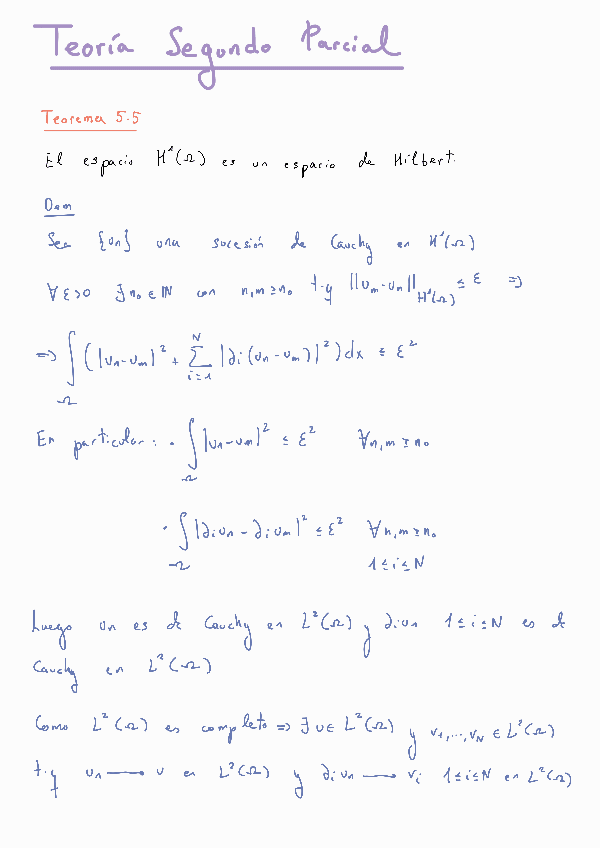 Teoría Segundo Parcial
Teorema 5.5
El espacio H¹(Ω) es un espacio de Hilbert.
Dem
Sea {un} una sucesión de Cauchy en H¹(Ω)
∀ε>0 ∃n₀∈ℕ con n,m≥n₀ t.q ||um-un||_H¹(Ω) ≤ ε =>
=> ∫_Ω (|un-um|² + Σ_{i=1}^N |∂i(un-um)|²)dx ≤ ε²
En particular: · ∫_Ω |un-um|² ≤ ε² ∀n,m≥n₀
· ∫_Ω |∂iun-∂ium|² ≤ ε² ∀n,m≥n₀
1≤i≤N
Luego un es de Cauchy en L²(Ω) y ∂iun 1≤i≤N es de
Cauchy en L²(Ω)
Como L²(Ω) es completo => ∃u∈L²(Ω) y v₁,...,v_N ∈ L²(Ω)
t.q un → u en L²(Ω) y ∂iun → vi 1≤i≤N en L²(Ω)